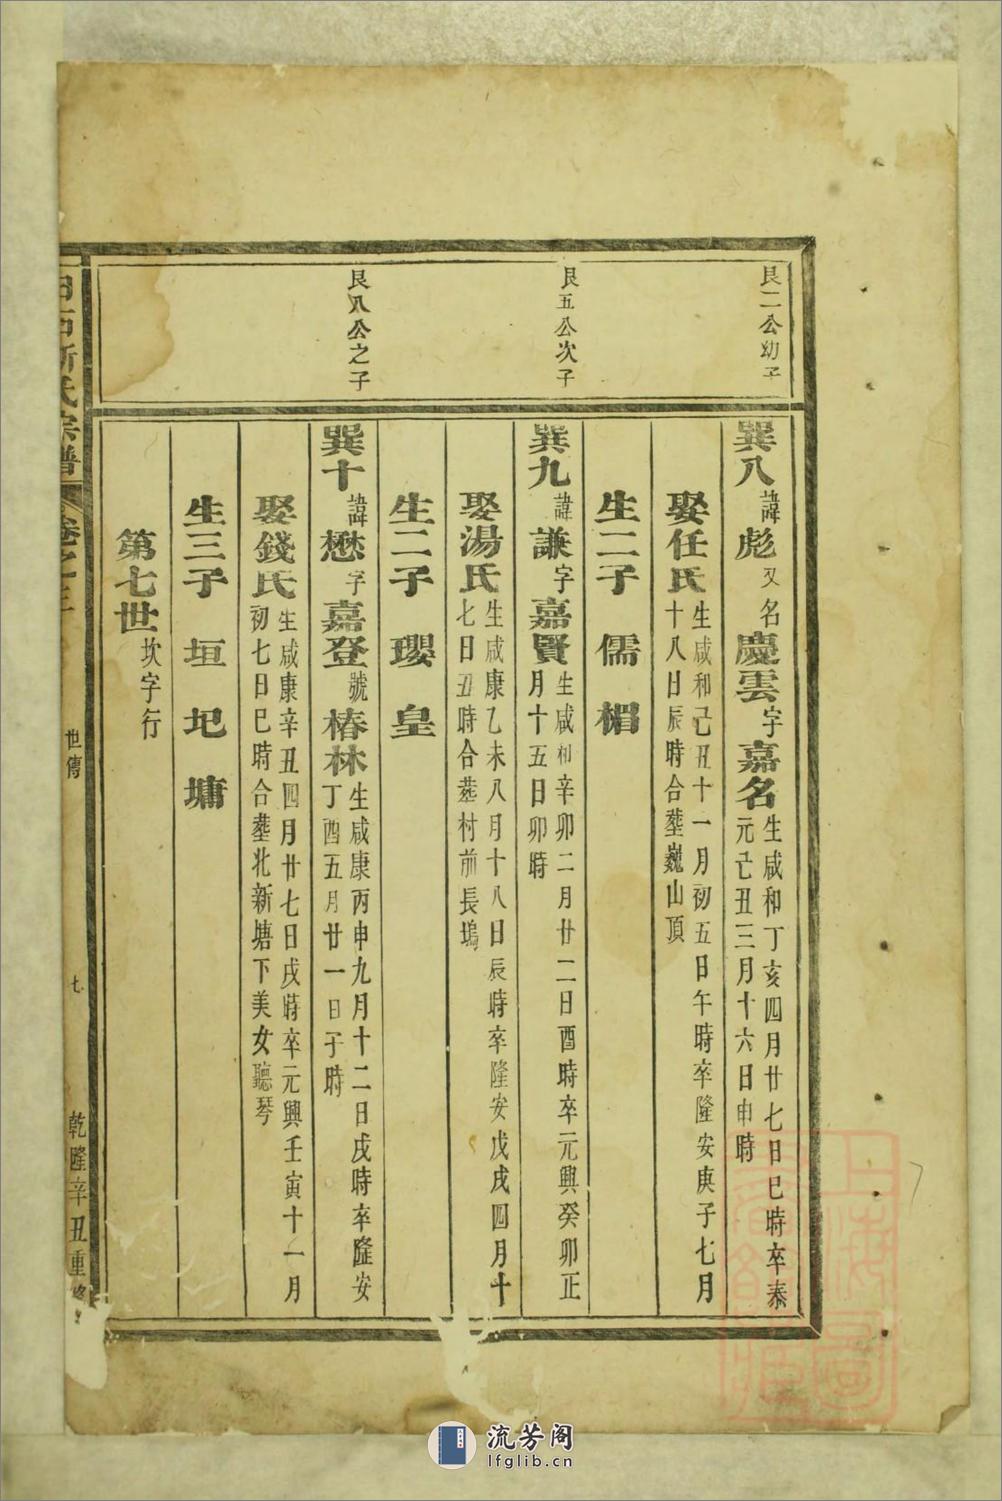 艮二公幼子
巽八諱彪又名慶雲字嘉名生咸和丁亥四月廿七日巳時卒泰
元己丑三月十六日申時
娶任氏生咸和己丑十一月初五日午時卒隆安庚子七月
十八日辰時合塟巍山頂
生二子 儒 楣
艮五公次子
巽九諱謙字嘉賢生咸和辛卯二月廿二日酉時卒元興癸卯正
月十五日卯時
娶湯氏生咸康乙未八月十八日辰時卒隆安戊戌四月十
七日丑時合塟村前長塢
生二子 瓔 皇
艮八公之子
巽十諱懋字嘉登號椿林生咸康丙申九月十二日戌時卒隆安
丁酉五月廿一日子時
娶錢氏生咸康辛丑四月廿七日戌時卒元興壬寅十一月
初七日巳時合塟北新塘下美女聽琴
生三子 垣 圯 墉
第七世坎字行
世傳
七
乾隆辛丑重修
流芳阁
lfglib.cn